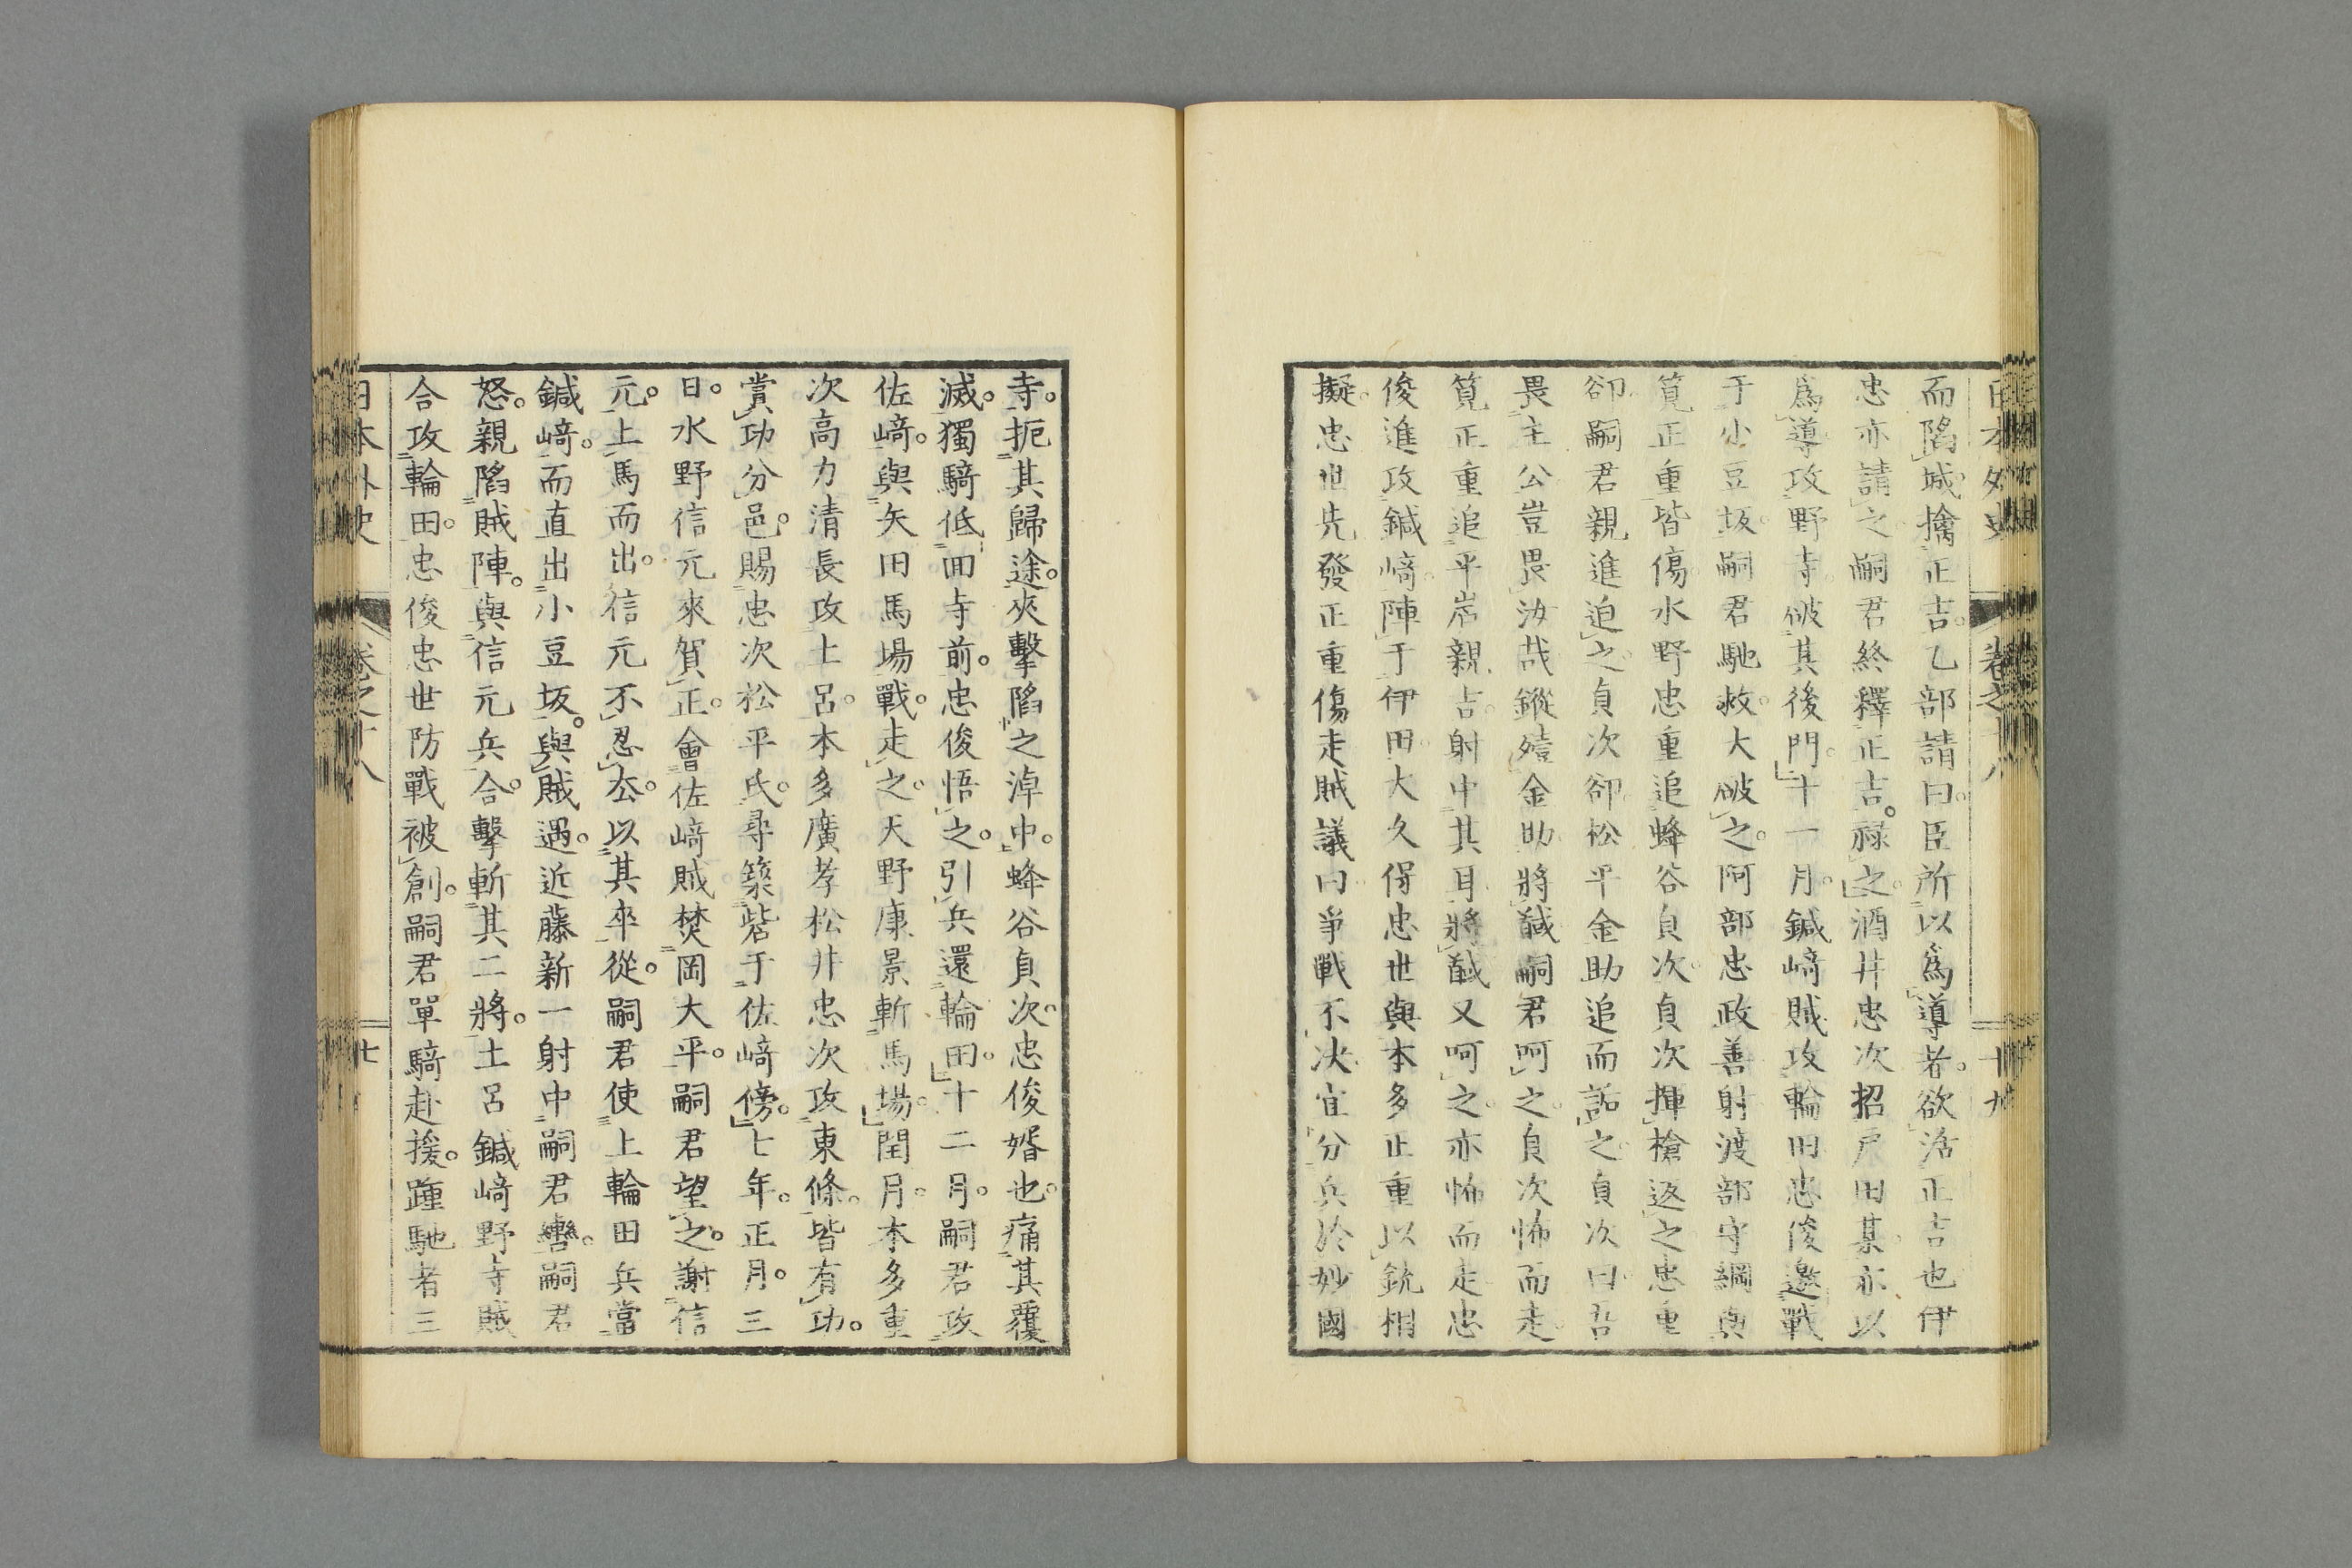 日本外史 卷之十八 十九
而陷城。擒正吉。乙部請曰。臣所以爲導者。欲活正吉也。伊
忠亦請之。嗣君終釋正吉。祿之。酒井忠次招戸田某。亦以
爲導。攻野寺。破其後門。十一月。鍼﨑賊攻輪田。忠俊邀戰
于小豆坂。嗣君馳救。大破之。阿部忠政善射。渡部守綱眞
筧正重皆傷。水野忠重追蜂谷貞次。貞次揮槍返之。忠重
卻。嗣君親進迫之。貞次卻。松平金助追而詬之。貞次曰。吾
畏主公。豈畏汝哉。鏦殪金助。將馘。嗣君呵之。貞次怖而走。
筧正重追平岩親吉。射中其耳。將馘。又呵之。亦怖而走。忠
俊進攻鍼﨑。陣于伊田。大久保忠世與本多正重以銃相
擬。忠世先發。正重傷走。賊議曰。爭戰不決。宜分兵於妙國
寺。扼其歸途。夾擊陷之淖中。蜂谷貞次。忠俊婿也。痛其覆
滅。獨騎低回寺前。忠俊悟之。引兵還輪田。十二月。嗣君攻
佐﨑。與矢田馬場戰。走之。天野康景斬馬場。閏月。本多重
次高力清長攻土呂。本多廣孝松井忠次攻東條。皆有功。
賞功分邑。賜忠次松平氏。尋築砦于佐﨑傍。七年。正月。三
日。水野信元來賀正。會佐﨑賊焚岡大平。嗣君望之。謝信
元。上馬而出。信元不忍去。以其卒從。嗣君使上輪田兵當
鍼﨑。而直出小豆坂。與賊遇。近藤新一射中嗣君轡。嗣君
怒。親陷賊陣。與信元兵合擊。斬其二將。土呂鍼﨑野寺賊
合攻輪田。忠俊忠世防戰被創。嗣君單騎赴援。踵馳者三
日本外史 卷之十八 廿